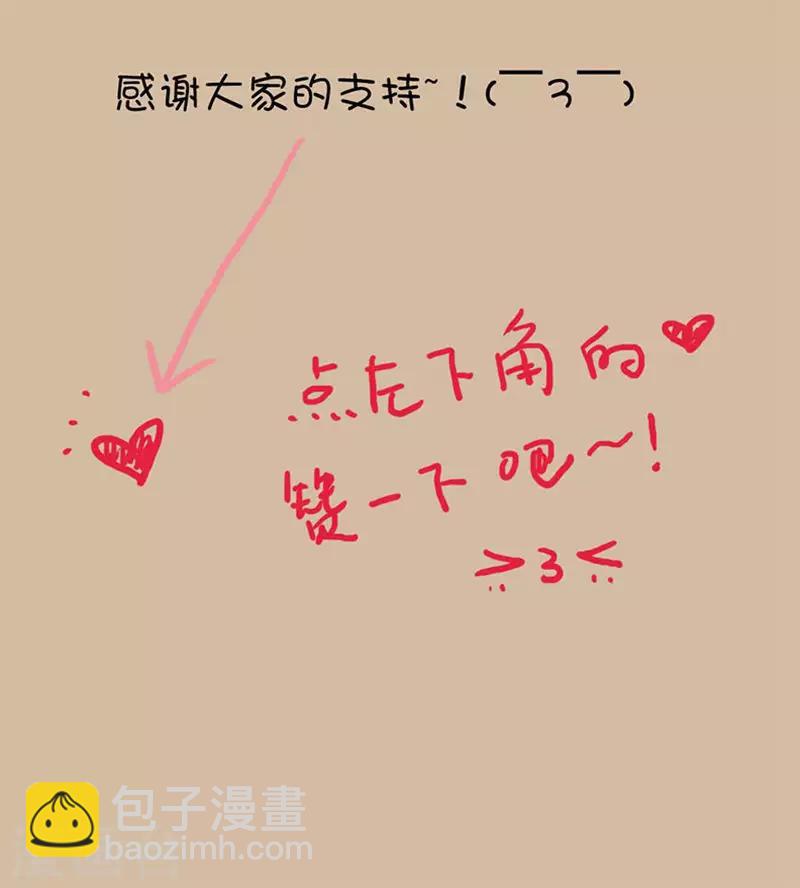 感谢大家的支持~！(￣3￣)
点左下角的
赞一下吧~！
>3<
包子漫畫
baozimh.com